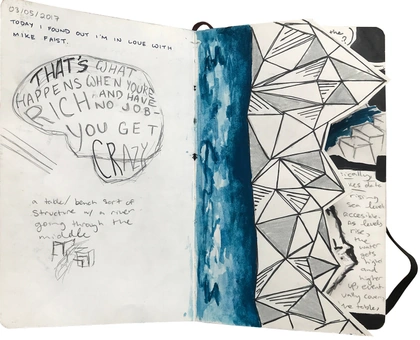 03/05/2017
TODAY I FOUND OUT I'M IN LOVE WITH
MIKE FAIST.
THAT'S WHAT
HAPPENS WHEN YOU'RE
RICH AND HAVE
NO JOB-
YOU GET
CRAZY
a table/bench sort of
structure w/ a river
going through the
middle
rising
sea levels
accessible.
as levels
rise,
the
water
gets
higher
and
higher
up,